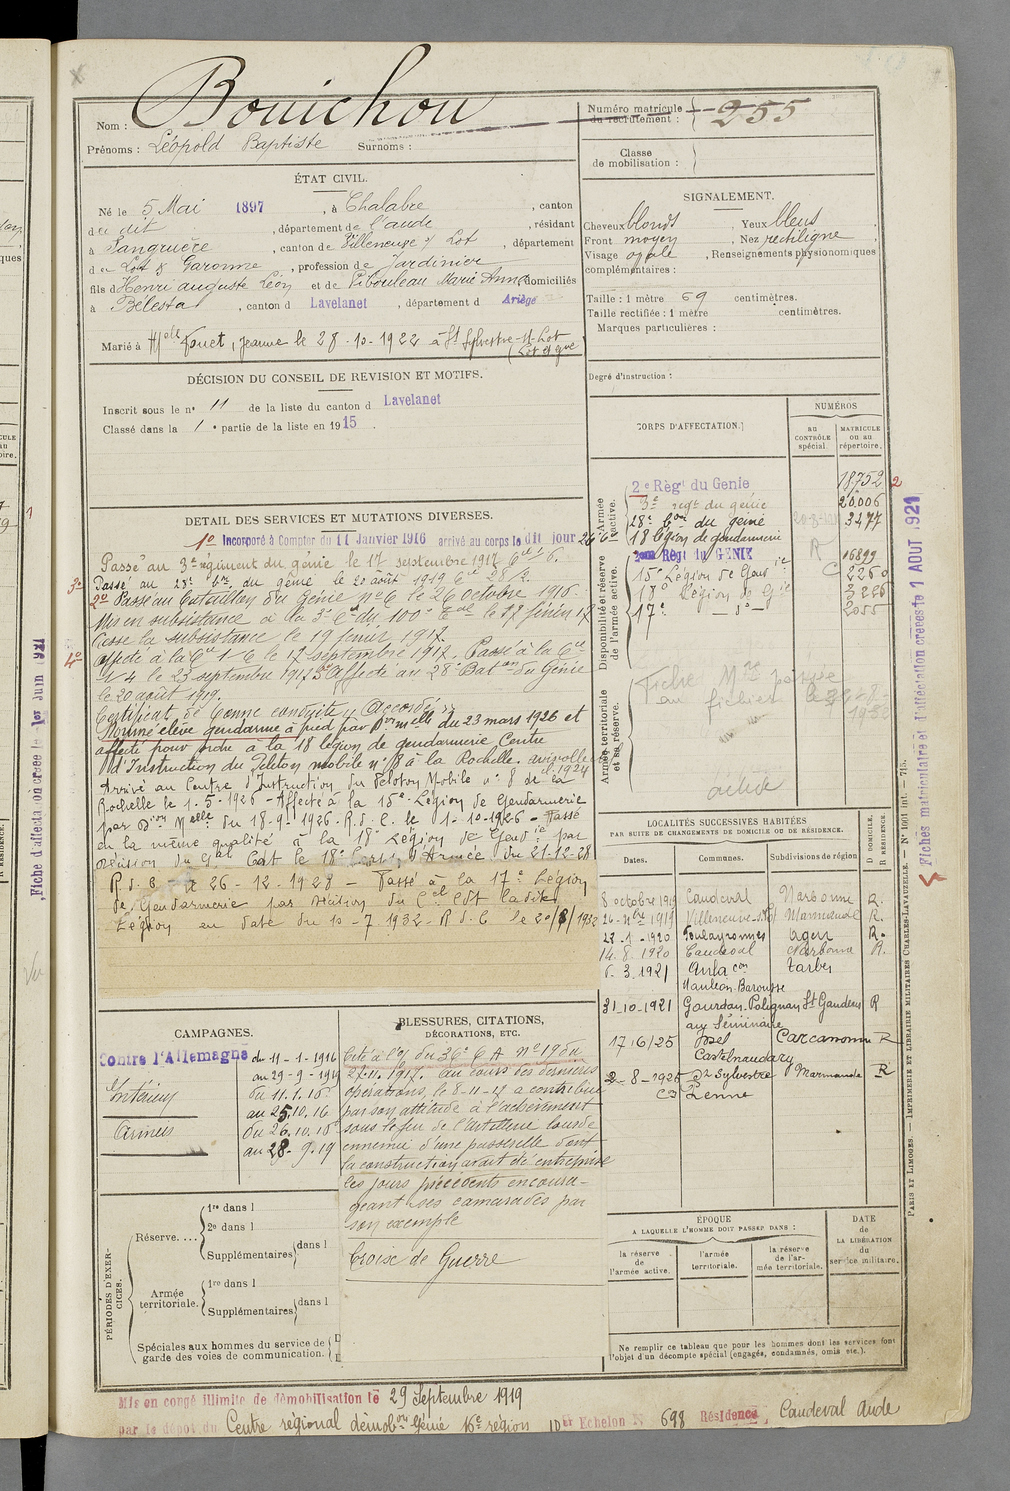 Nom : Bouichou
Prénoms : Léopold Baptiste Surnoms :
Numéro matricule du recrutement : 255
Classe de mobilisation :
ÉTAT CIVIL.
Né le 5 Mai 1897, à Chalabre, canton
du dit, département de l'aude, résidant
à Sangruère, canton de Villeneuve s/ Lot, département
du Lot & Garonne, profession de Jardinier
fils d Henri auguste Léon et de Marie Anna domiciliés
à Bélesta, canton d Lavelanet, département d Ariège
Marié à Melle Fouet, Jeanne le 28-10-1922 à St Sylvestre-s/-Lot
(Lot et Gne
SIGNALEMENT.
Cheveux blonds, Yeux bleus
Front moyen, Nez rectiligne
Visage ovale, Renseignements physionomiques
complémentaires :
Taille : 1 mètre 69 centimètres.
Taille rectifiée : 1 mètre centimètres.
Marques particulières :
Degré d'instruction :
DÉCISION DU CONSEIL DE REVISION ET MOTIFS.
Inscrit sous le n° 11 de la liste du canton d Lavelanet
Classé dans la 1e partie de la liste en 1915.
DETAIL DES SERVICES ET MUTATIONS DIVERSES.
1° Incorporé à Compter du 11 Janvier 1916 arrivé au corps le dit jour
Passé au 3e régiment du génie le 17 septembre 1917
3° Passé au 28e bon du génie le 20 août 1919 Cie 28/2.
2° Passé au bataillon du Génie n° 6 le 26 octobre 1916.
Mis en subsistance à la
Cesse la subsistance le 19 février 1917.
4° Affecté à la Cie le 17 septembre 1917. Passé à la Cie
le 23 septembre 1917 Affecté au 28e Baton du Génie
le 20 août 1919.
Certificat de bonne conduite accordé.
Nommé élève gendarme à pied par Don melle du 23 mars 1926 et
affecté pour ordre à la 18 légion de gendarmerie Centre
d'Instruction du Peloton mobile n° 8 à la Rochelle.
Arrivé au Centre d'Instruction du Peloton Mobile n° 8 de la
Rochelle le 1-5-1926 - Affecté à la 15e Légion de Gendarmerie
par Dion Melle du 18-9-1926. R.d.C. le 1-10-1926 - Passé
en la même qualité à la 18e Légion de Gendie par
décision du Gal Cdt le 18e Corps d'Armée du 21-12-28
R.d.C. le 26-12-1928 - Passé à la 17e Légion
de Gendarmerie par décision du Cel Cdt ladite
Légion en date du 10-7-1932 - R.d.C le 20/8/1932
CORPS D'AFFECTATION.
NUMÉROS
AU CONTRÔLE spécial.
MATRICULE ou au répertoire.
Armée active.
2e Règt du Genie 18752
3e regt du génie 20.006
28e bon du génie 3477
18 légion de gendarmerie
Disponibilité et réserve de l'armée active.
2me Règt du GENIE 16899
15e Légion de Gendie 2260
18e Légion de Gie 3226
17e — do — 2055
Armée territoriale et sa réserve.
Fiche Mle passée
au fichier
active
LOCALITÉS SUCCESSIVES HABITÉES
PAR SUITE DE CHANGEMENTS DE DOMICILE OU DE RÉSIDENCE.
Dates. Communes. Subdivisions de région D DOMICILE. R RÉSIDENCE.
8 octobre 1919 Caudeval Narbonne R.
26-nbre 1919 Villeneuve-s/Lot Marmande R.
28-1-1920 Agen R.
14.8.1920 Caudeval Narbonne R.
6.3.1921 Tarbes
Mauléon-Barousse
31-10-1921 Gourdan-Polignan St Gaudens R
au Séminaire
Carcassonne R
Castelnaudary
2-8-1926 St Sylvestre Marmande R
Penne
CAMPAGNES.
Contre l'Allemagne du 11-1-1916
au 29-9-1919
Intérieur du 11.1.16
au 25.10.16
Armées du 26.10.16
au 28-9-19
BLESSURES, CITATIONS,
DÉCORATIONS, ETC.
Cité à l'O/ du 36e C.A. N° 19 du
27.11.1917. au cours des dernières
opérations, le 8-11-17 a contribué
par son attitude à l'achèvement
sous le feu de l'artillerie lourde
ennemie d'une passerelle dont
la construction avait été entreprise
les jours précédents encoura-
geant ses camarades par
son exemple
Croix de Guerre
PÉRIODES D'EXERCICES.
Réserve.... 1re dans l
2e dans l
Supplémentaires dans l
Armée territoriale. 1re dans l
Supplémentaires dans l
Spéciales aux hommes du service de
garde des voies de communication.
ÉPOQUE
A LAQUELLE L'HOMME DOIT PASSER DANS :
la réserve de l'armée active.
l'armée territoriale.
la réserve de l'armée territoriale.
DATE de LA LIBÉRATION du service militaire.
Ne remplir ce tableau que pour les hommes dont les services font
l'objet d'un décompte spécial (engagés, condamnés, omis etc.).
Mis en congé illimité de démobilisation le 29 Septembre 1919
par le dépôt du Centre régional démobon Génie 16e région 10er Echelon N° 698 Résidence, Caudeval Aude
PARIS ET LIMOGES. — IMPRIMERIE ET LIBRAIRIE MILITAIRES CHARLES-LAVAUZELLE. — N° 1001 int. — 715.
Fiches matriculaire et d'affectation créées le 1 AOUT 1921
Fiche d'affectation créée le 1er Juin 1921